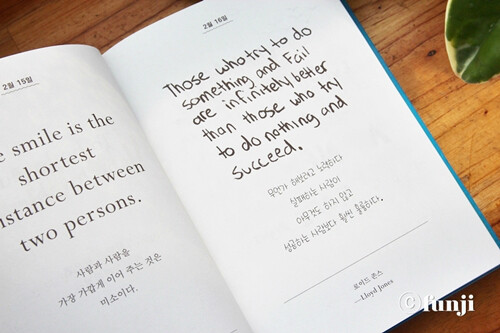 2월 15일
e smile is the
shortest
istance between
two persons.
사람과 사람을
가장 가깝게 이어 주는 것은
미소이다.
2월 16일
Those who try to do
something and Fail
are infinitely better
than those who try
to do nothing and
succeed.
무언가 해보려고 노력하다
실패하는 사람이
아무것도 하지 않고
성공하는 사람보다 훨씬 훌륭하다.
로이드 존스
—Lloyd Jones
©funji